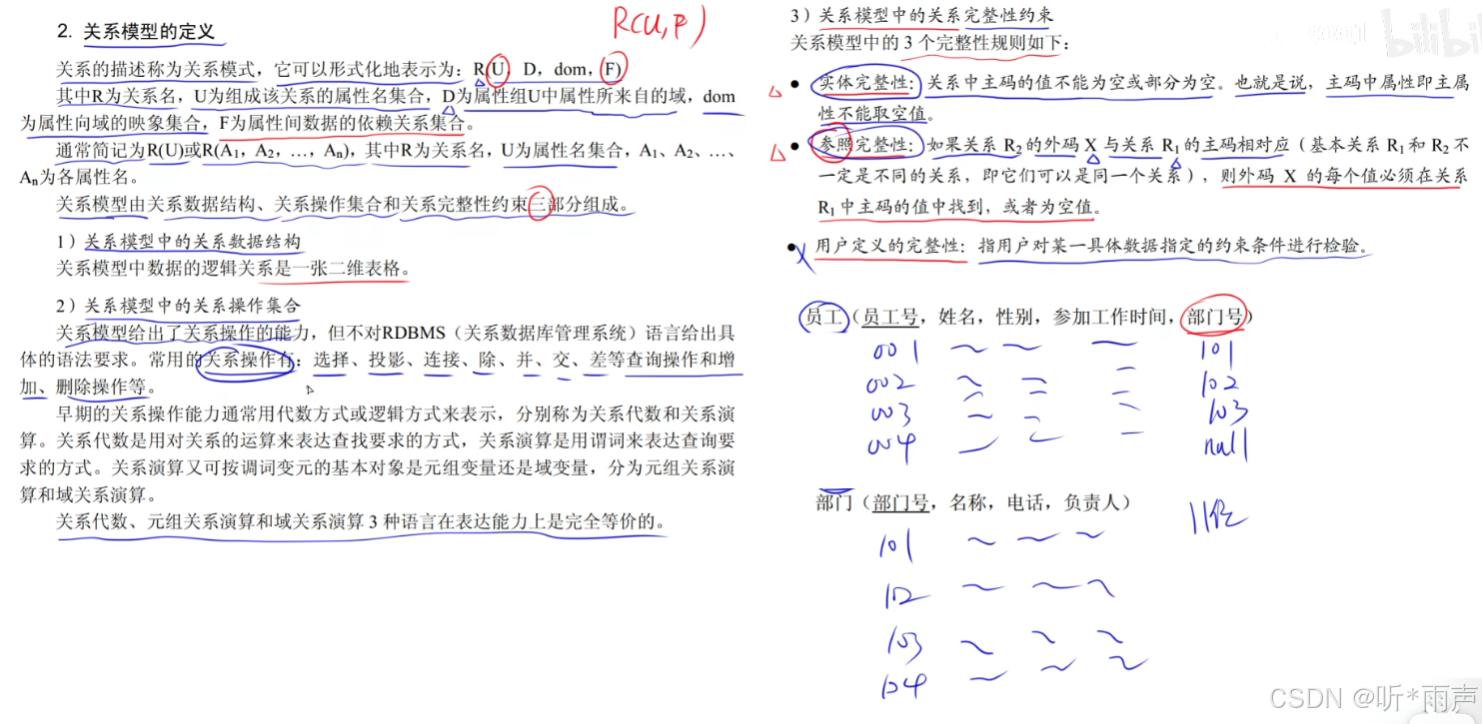 2. 关系模型的定义
R(U,F)
关系的描述称为关系模式，它可以形式化地表示为：R(U，D，dom，F)
其中R为关系名，U为组成该关系的属性名集合，D为属性组U中属性所来自的域，dom
为属性向域的映象集合，F为属性间数据的依赖关系集合。
通常简记为R(U)或R(A₁，A₂，…，Aₙ)，其中R为关系名，U为属性名集合，A₁、A₂、…、
Aₙ为各属性名。
关系模型由关系数据结构、关系操作集合和关系完整性约束三部分组成。
1）关系模型中的关系数据结构
关系模型中数据的逻辑关系是一张二维表格。
2）关系模型中的关系操作集合
关系模型给出了关系操作的能力，但不对RDBMS（关系数据库管理系统）语言给出具
体的语法要求。常用的关系操作有：选择、投影、连接、除、并、交、差等查询操作和增
加、删除操作等。
早期的关系操作能力通常用代数方式或逻辑方式来表示，分别称为关系代数和关系演
算。关系代数是用对关系的运算来表达查找要求的方式，关系演算是用谓词来表达查询要
求的方式。关系演算又可按调词变元的基本对象是元组变量还是域变量，分为元组关系演
算和域关系演算。
关系代数、元组关系演算和域关系演算 3 种语言在表达能力上是完全等价的。
3）关系模型中的关系完整性约束
关系模型中的 3 个完整性规则如下：
● 实体完整性：关系中主码的值不能为空或部分为空。也就是说，主码中属性即主属
性不能取空值。
● 参照完整性：如果关系 R₂ 的外码 X 与关系 R₁ 的主码相对应（基本关系 R₁ 和 R₂ 不
一定是不同的关系，即它们可以是同一个关系），则外码 X 的每个值必须在关系
R₁ 中主码的值中找到，或者为空值。
● 用户定义的完整性：指用户对某一具体数据指定的约束条件进行检验。
员工（员工号，姓名，性别，参加工作时间，部门号）
001 101
002 102
003 103
004 null
部门（部门号，名称，电话，负责人）
11位
101
102
103
104
bilibili
CSDN @听*雨声